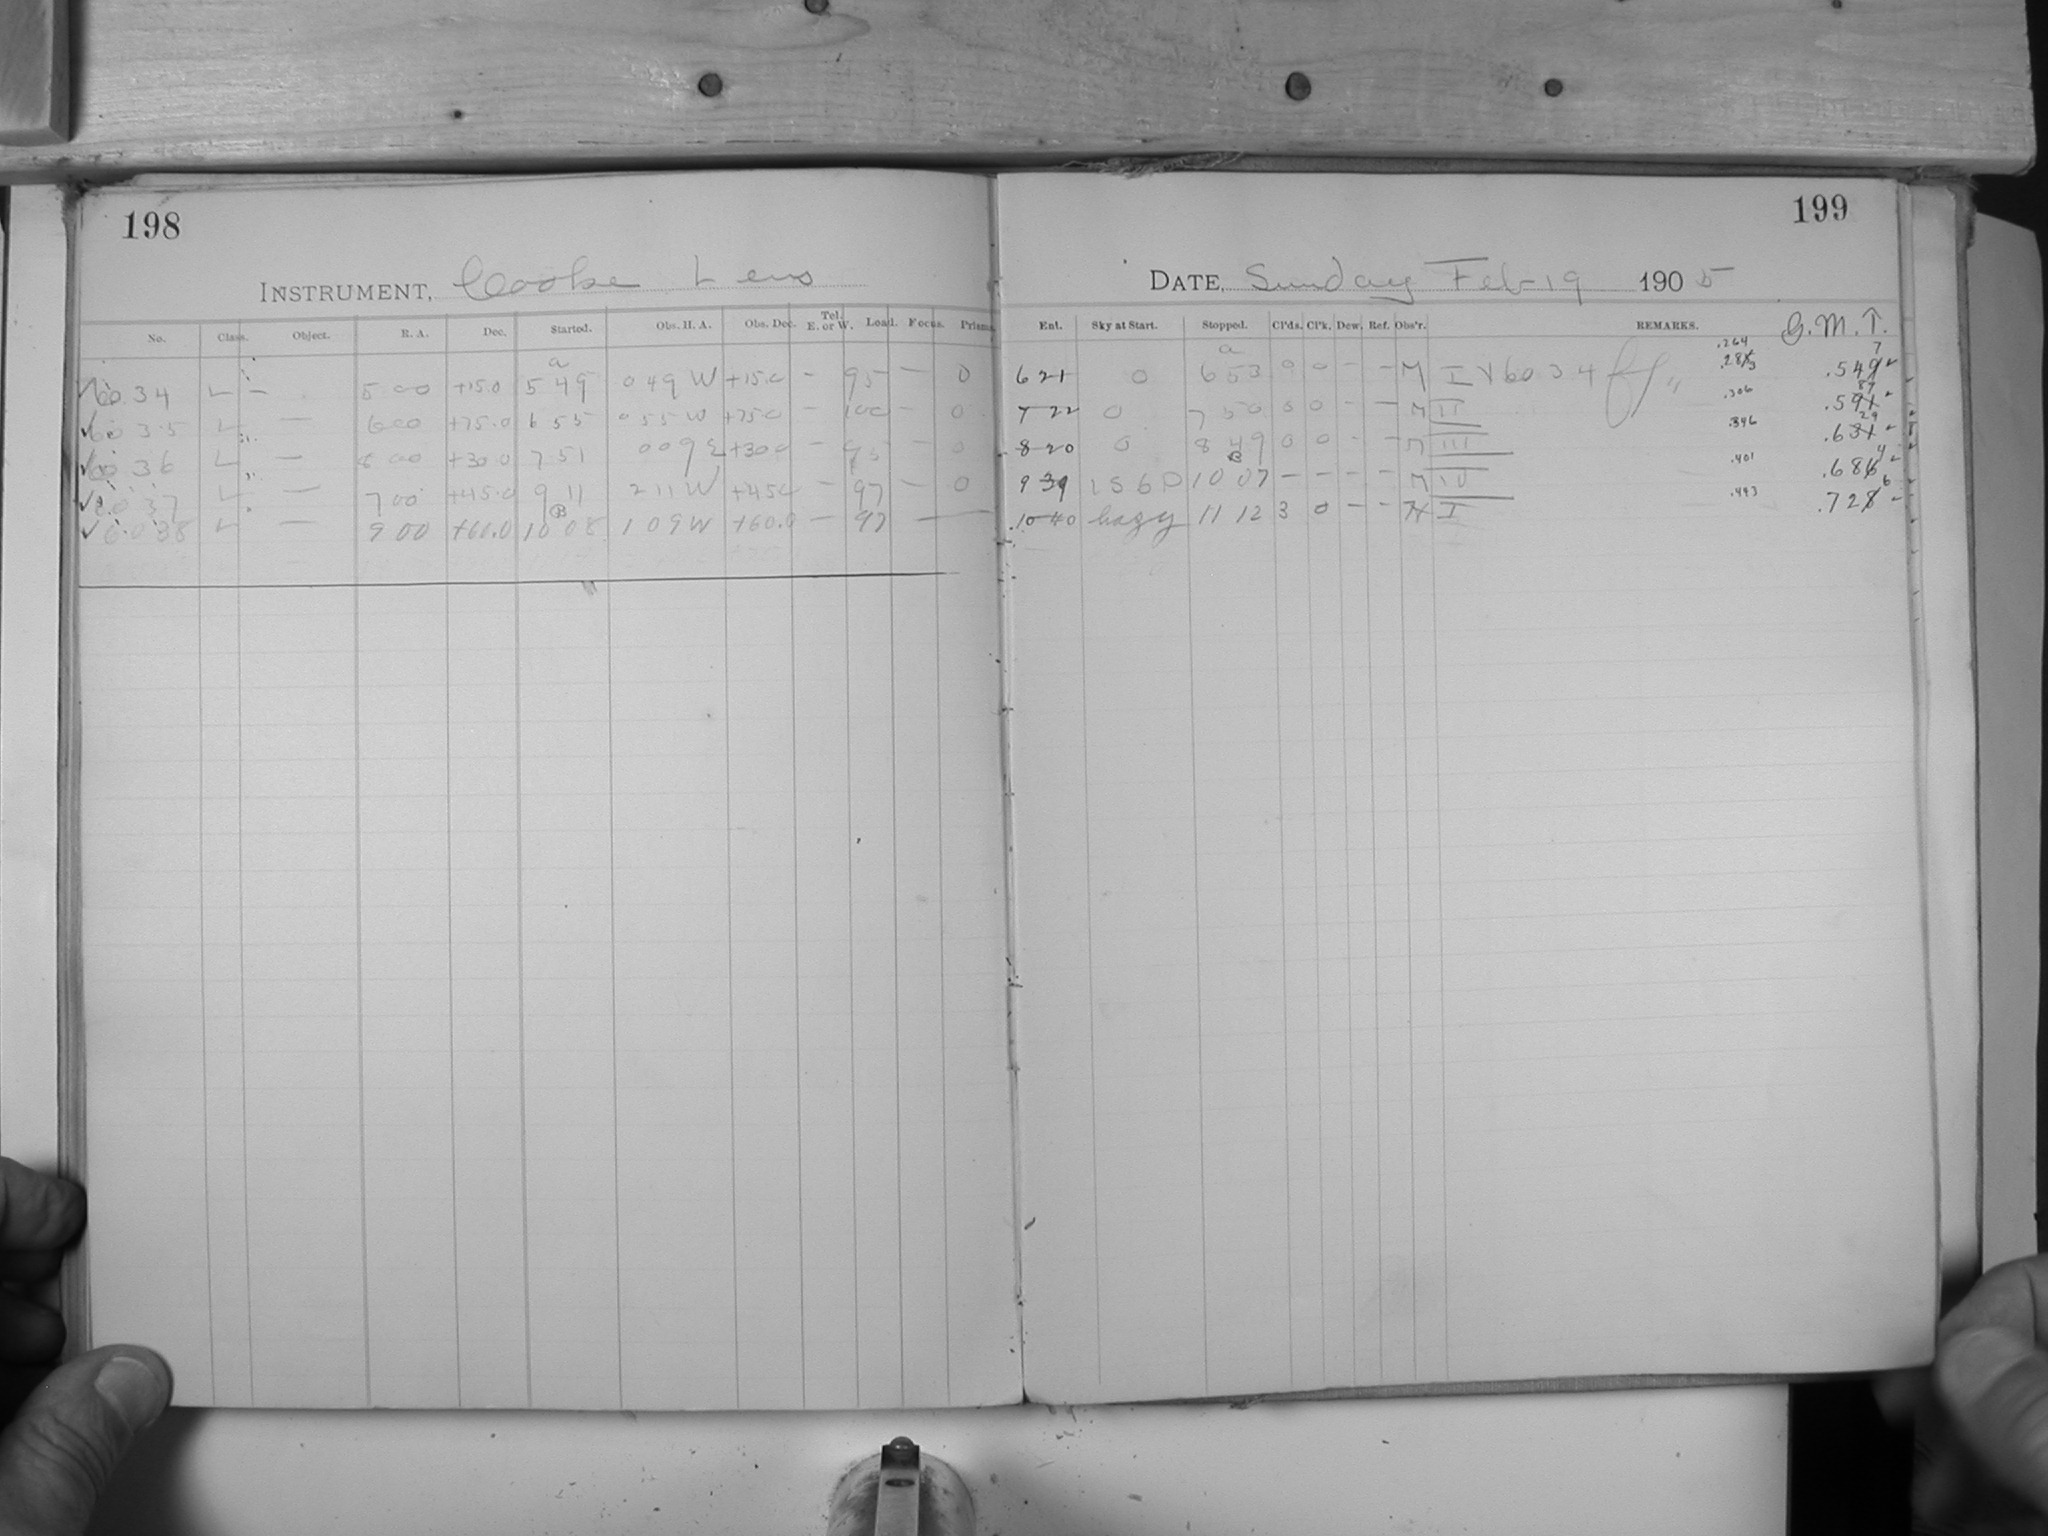 198
INSTRUMENT, Cooke Lens
No. Class. Object. R. A. Dec. Started. Obs. H. A. Obs. Dec. Tel. E. or W. Load. Focus. Prisms.
a
6034 L — 5 00 +15.0 5 49 0 49 W +15.0 — 95 — 0
6035 L — 6 00 +75.0 6 55 0 55 W +75.0 — 100 — 0
6036 L — 8 00 +30.0 7 51 0 09 E +30.0 — 95 — 0
6037 L — 7 00 +45.0 9 11 2 11 W +45.0 — 97 — 0
B
6038 L — 9 00 +60.0 10 08 1 09 W +60.0 — 97 —
199
DATE, Sunday Feb 19 1905
Ent. Sky at Start. Stopped. Cl'ds. Cl'k. Dew. Ref. Obs'r. REMARKS. G.M.T.
a
6 21 0 6 53 0 0 — — M I .264 .549
7 22 0 7 50 0 0 — — M II .306
8 20 0 8 49 0 0 — — M III .346 .631
B
9 39 1 S 6 P 10 07 — — — — M IV .401 .686
10 40 hazy 11 12 3 0 — — H I .443 .728